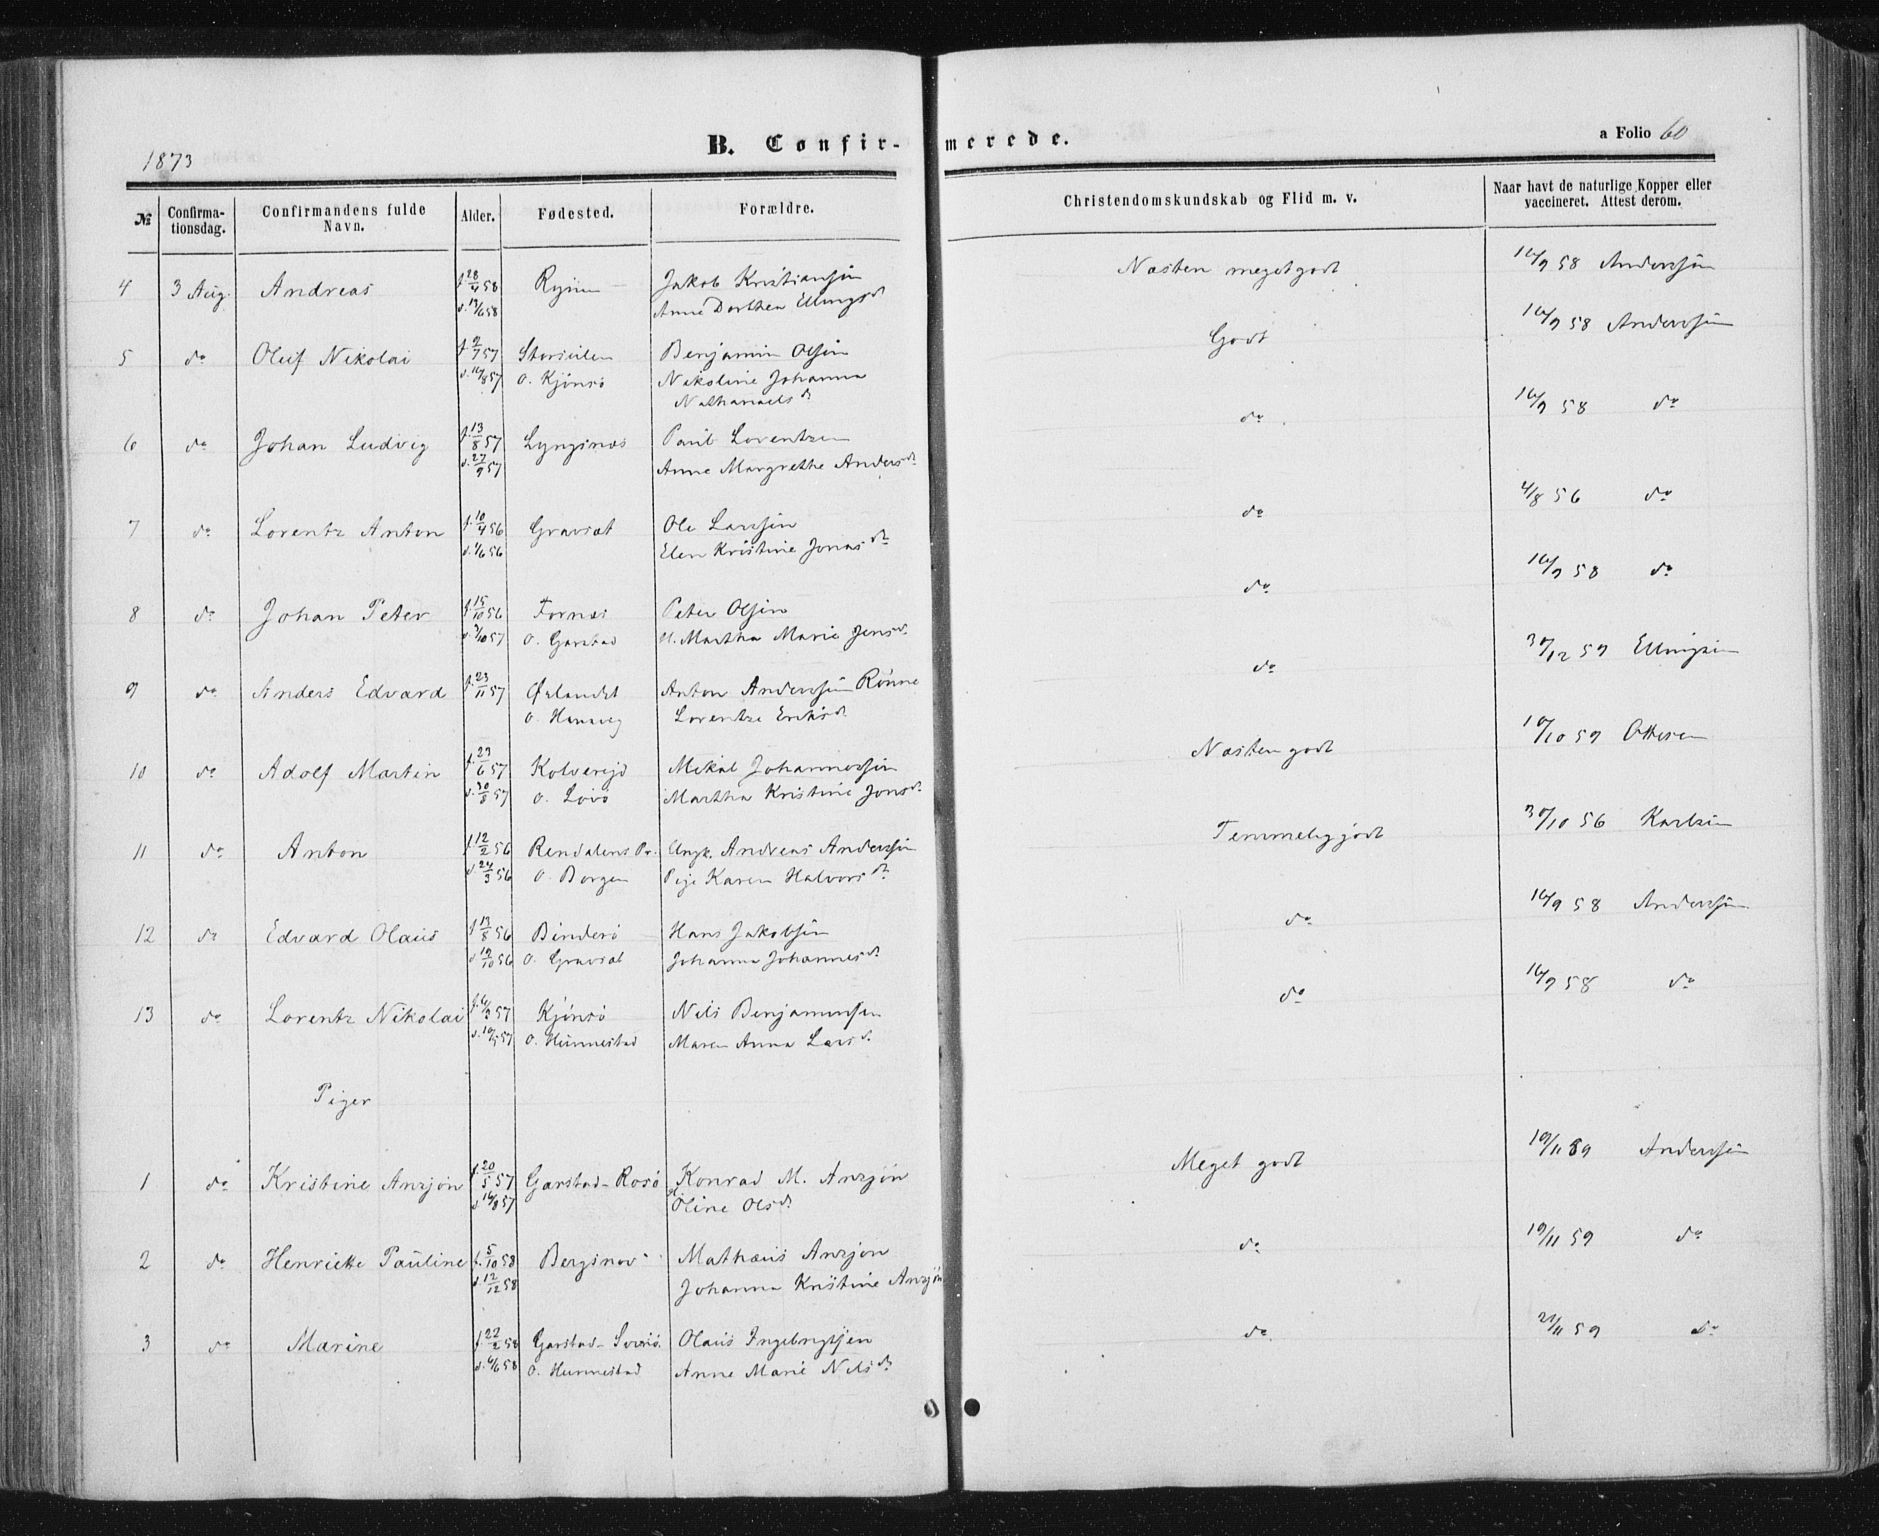 1873
B. Confirmerede.
a Folio 60
№ Confirmationsdag. Confirmandens fulde Navn. Alder. Fødested. Forældre. Christendomskundskab og Flid m. v. Naar havt de naturlige Kopper eller vaccineret. Attest derom.
4 3 Aug. Andreas f. 28/4 58 Jakob Kristiansøn Næsten meget godt 16/9 58 Anderssøn
Anne Dorthea Ellingsd.
5 do Oluf Nikolai f. 2/7 57 Benjamin Olsøn Godt 16/9 58 Anderssøn
d. 16/8 57 o. Kjönsö Nikoline Johanna
Nathanaelsd.
6 do Johan Ludvig f. 13/8 57 Lyngsnæs Paul Lorentzen do 16/9 58 do
d. 27/9 57 Anne Margrethe Andersd.
7 do Lorentz Anton f. 10/4 56 Gravsæt Ole Larssøn do 4/8 56 do
d. 1/6 56 Elen Kristine Jonasd.
8 do Johan Peter f. 15/10 56 Fornæs Peter Olsøn do 16/9 58 do
o. Garstad H. Martha Marie Jensd.
9 do Anders Edvard f. 23/11 57 Ørlandet Anton Anderssøn Rönne do 30/12 59 Ellingsen
Lorentze Eriksd.
10 do Adolf Martin f. 29/6 57 Kolvereid Mikal Johannessøn Næsten godt 10/10 59 Ottesen
d. 30/8 57 o. Lövö Martha Kristine Jonsd.
11 do Anton f. 12/2 56 Rendalens Pr. Ungk. Andreas Anderssøn Temmelig godt 30/10 56 Karlsen
d. 24/3 56 o. Borgen Pige Karen Halvorsd.
12 do Edvard Olaus f. 13/8 56 Binderö Hans Jakobsøn do 16/9 58 Anderssøn
d. 19/10 56 o. Gravsæt Johanna Johannesd.
13 do Lorentz Nikolai f. 6/3 57 Kjönsö Nils Benjaminsen do 16/9 58 do
d. 10/5 57 o. Hunnestad Maren Anna Larsd.
Piger
1 do Kristine Anzjön f. 20/5 57 Garstad-Rosö Konrad M. Anzjön Meget godt 19/11 59 Anderssøn
d. 16/8 57 Oline Olsd.
2 do Henriette Pauline f. 5/10 58 Bergsnov Mathæus Anzjön do 19/11 59 do
d. 12/12 58 Johanna Kristine Anzjön
3 do Marine f. 22/2 58 Garstad- Olaus Ingebrigtsen do 21/11 59 do
d. 6/6 58 o. Hunnestad Anne Marie Nilsd.